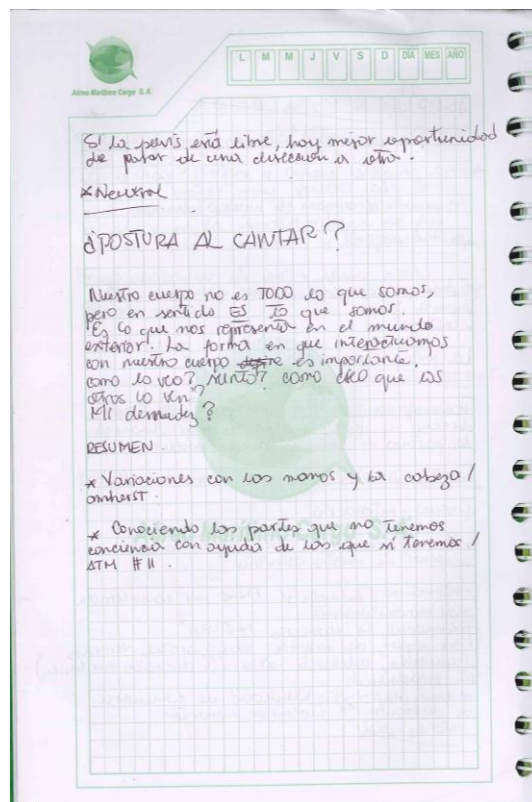 Aéreo Marítimo Cargo S.A.
L M M J V S D DÍA MES AÑO
Si la pelvis está libre, hay mejor oportunidad
de pasar de una dirección a otra.
* Neutral
¿POSTURA AL CANTAR?
Nuestro cuerpo no es TODO lo que somos,
pero en sentido ES lo que somos.
Es lo que nos representa en el mundo
exterior. La forma en que interactuamos
con nuestro cuerpo es importante.
como lo veo? siento? como creo que los
otros lo ven?
Mi desnudez?
RESUMEN
* Variaciones con las manos y la cabeza /
amherst.
* Conociendo las partes que no tenemos
conciencia con ayuda de las que sí tenemos /
ATM # 11.